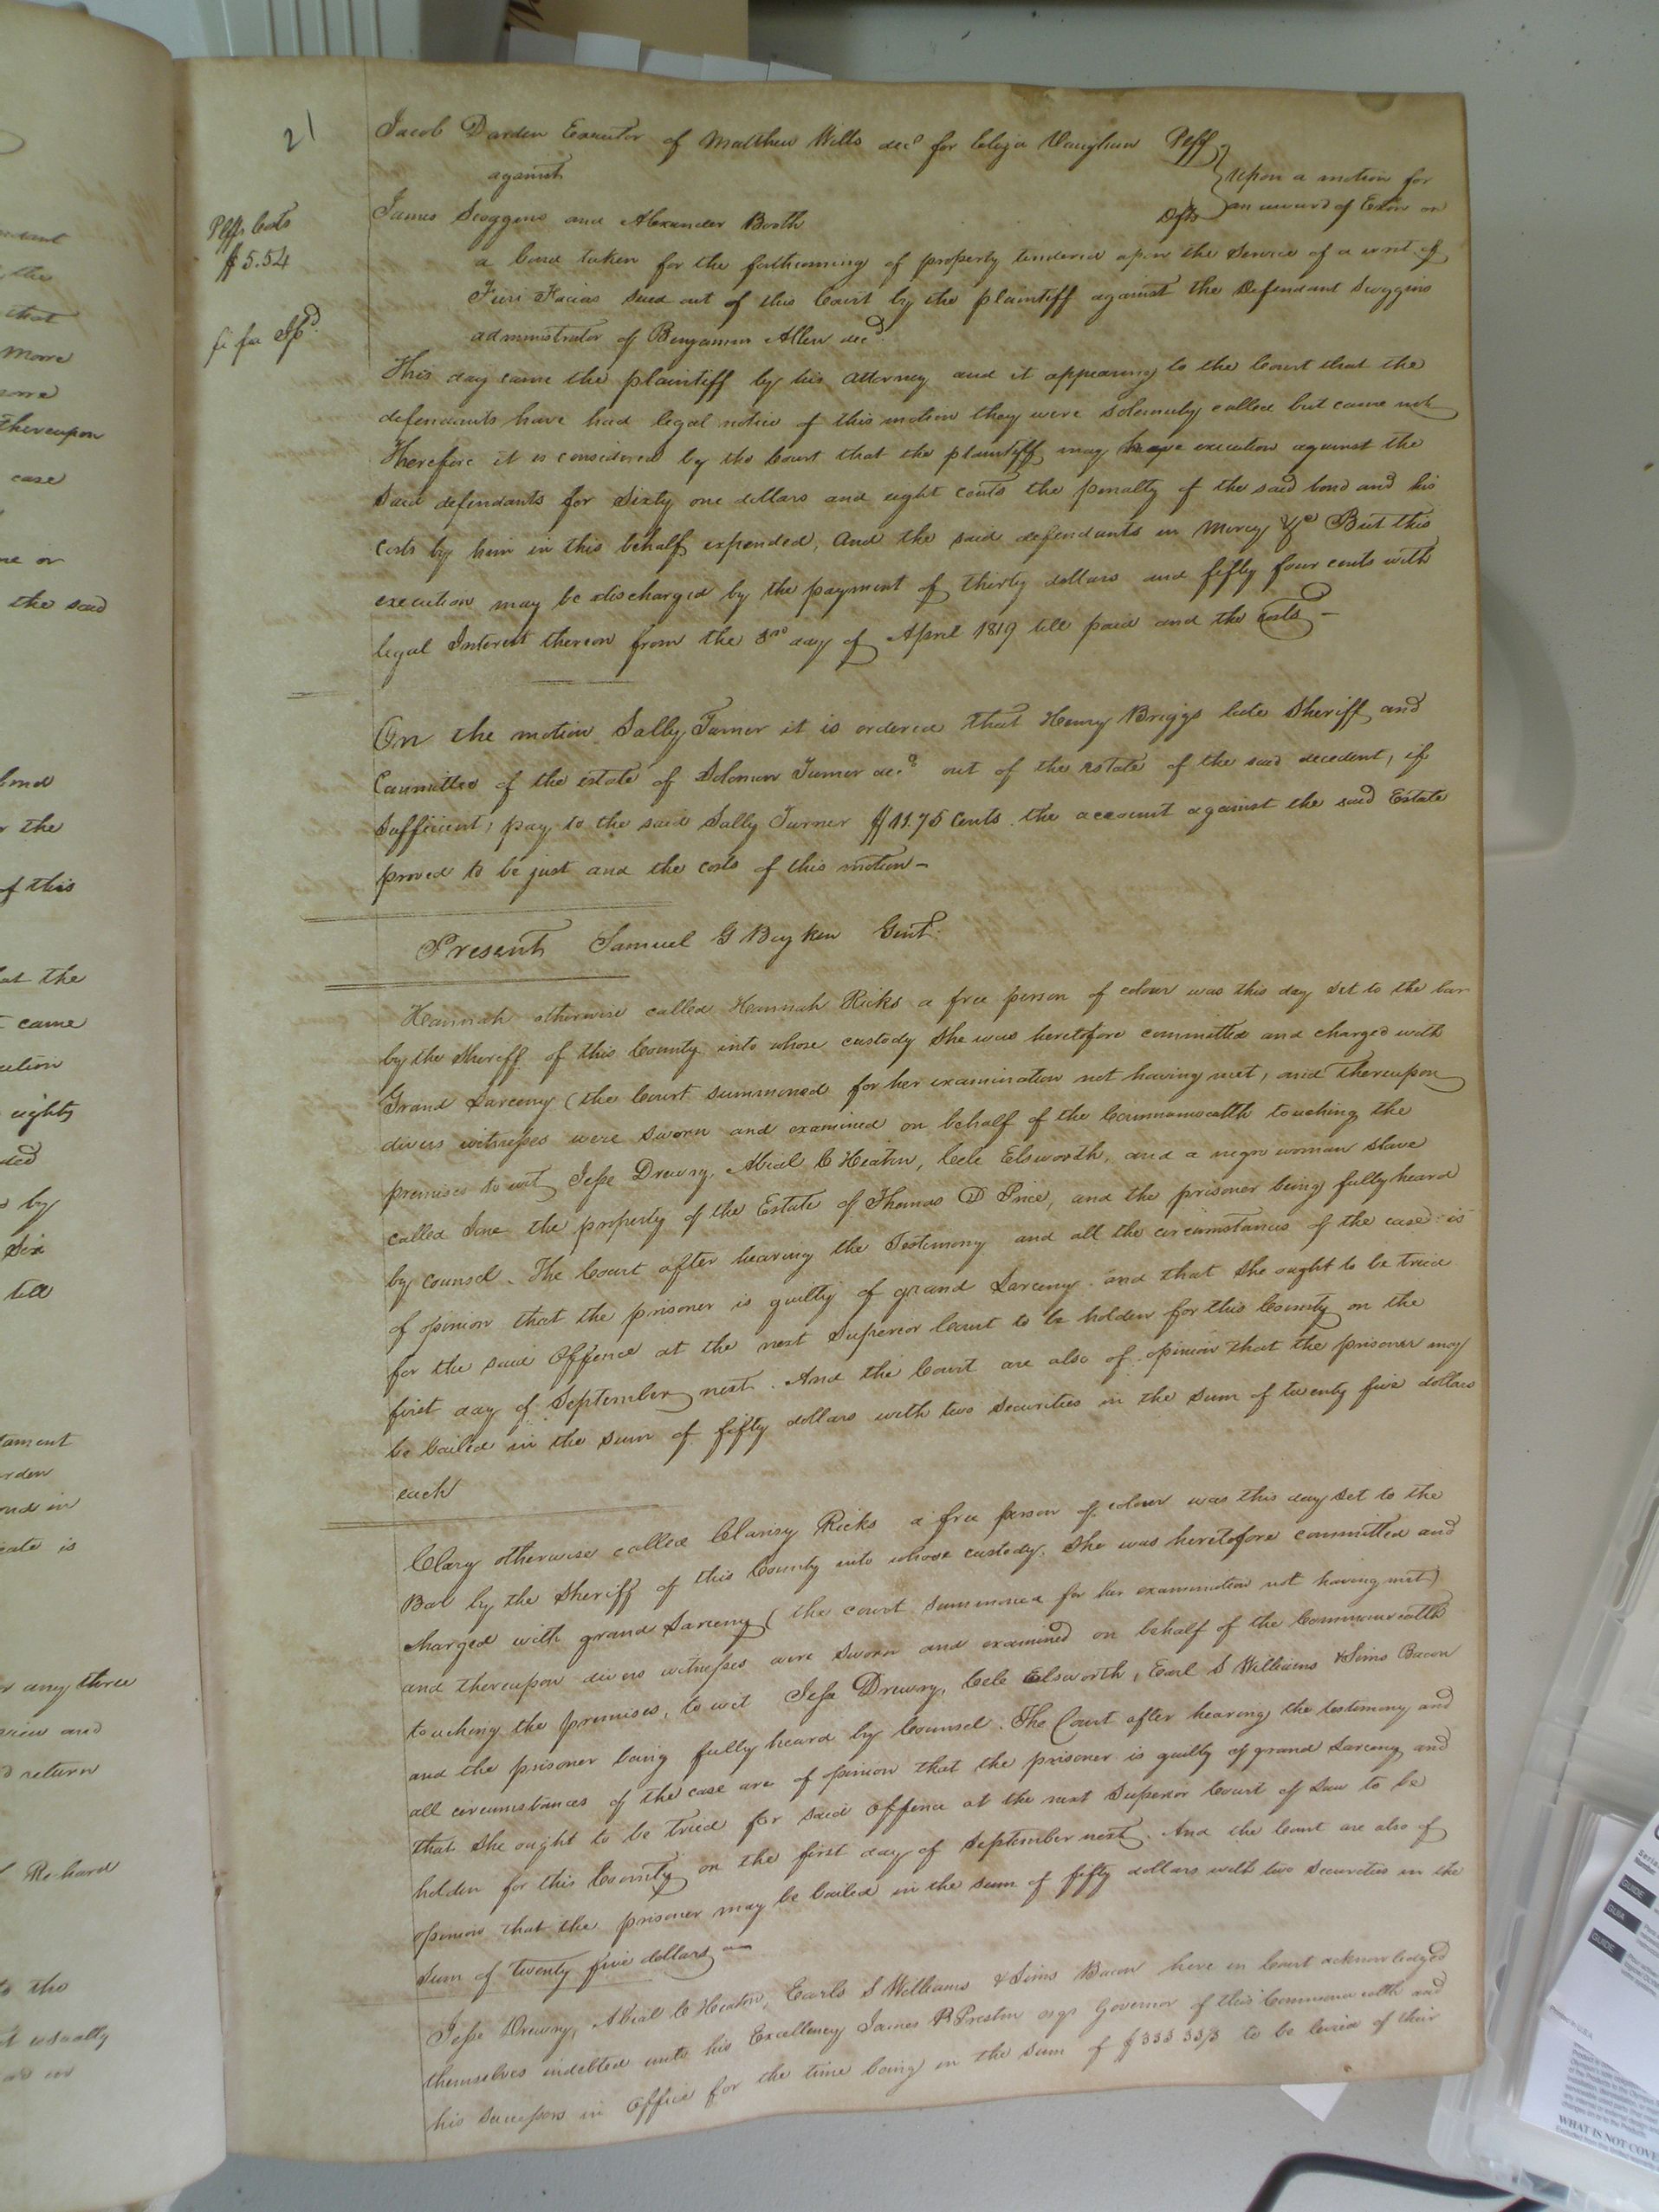 21
Jacob Darden Executor of Matthew Wills decd for Eliza Vaughan Plff
against
Upon a motion for
James Scoggins and Alexander Booth Dfts an award of Exōn on
Plffs Costs
$5.54
a bond taken for the forthcoming of property tendered upon the Service of a writ of
Fieri Facias sued out of this Court by the plaintiff against the Defendant Scoggins
fi fa
administrator of Benjamin Allen decd.
This day came the plaintiff by his Attorney and it appearing to the Court that the
defendants have had legal notice of this motion they were solemnly called but came not
Therefore it is considered by the Court that the plaintiff may have execution against the
Said defendants for Sixty one dollars and eight cents the penalty of the said bond and his
Costs by him in this behalf expended, And the said defendants in Mercy &c But this
execution may be discharged by the payment of thirty dollars and fifty four cents with
legal Interest thereon from the 3rd day of April 1819 till paid and the Costs -
On the motion Sally Turner it is ordered that Henry Briggs late Sheriff and
Committee of the estate of Solomon Turner decd. out of the estate of the said decedent, if
Sufficient, pay to the said Sally Turner $11.75 Cents the account against the said Estate
proved to be just and the costs of this motion -
Present Samuel G Boykin Gent.
Hannah otherwise called Hannah Ricks a free person of colour was this day set to the bar
by the Sheriff of this County into whose custody She was heretofore committed and charged with
Grand Larceny (the Court summoned for her examination not having met, and Thereupon
divers witnesses were sworn and examined on behalf of the Commonwealth touching the
premises to wit Jesse Drewry, Abial C Heaton, Cele Elsworth, and a negro woman slave
called the property of the Estate of Thomas D Price, and the prisoner being fully heard
by counsel. The Court after hearing the Testimony and all the circumstances of the case is
of opinion that the prisoner is guilty of grand Larceny and that She ought to be tried
for the said Offence at the next Superior Court to be holden for this County on the
first day of September next. And the Court are also of opinion that the prisoner may
be bailed in the sum of fifty dollars with two securities in the sum of twenty five dollars
each
Clary otherwise called Clarisy Ricks a free person of colour was this day set to the
Bar by the Sheriff of this County into whose custody She was heretofore committed and
charged with grand Larceny (the court summoned for her examination not having met)
and thereupon divers witnesses were sworn and examined on behalf of the Commonwealth
touching the premises, to wit Jesse Drewry, Cele Elsworth, Earl S Williams & Sims Bacon
and the prisoner being fully heard by Counsel. The Court after hearing the testimony and
all circumstances of the case are of opinion that the prisoner is guilty of grand Larceny and
that She ought to be tried for said offence at the next Superior Court of Law to be
holden for this County on the first day of September next. And the Court are also of
opinion that the prisoner may be bailed in the sum of fifty dollars with two securities in the
Sum of twenty five dollars
Jesse Drewry, Abial C Heaton, Earls S Williams & Sims Bacon here in Court acknowledged
themselves indebted unto his Excellency James P Preston esqr Governor of this Commonwealth and
his successors in Office for the time being in the sum of $333 33/3 to be levied of their
the
that
Moore
Thereupon
case
the said
the
of this
at the
came
eighty
by
Six
till
in
is
any three
and
return
Richard
the
usually
GUIDE
GUIA
GUIDE
WHAT IS NOT COVE